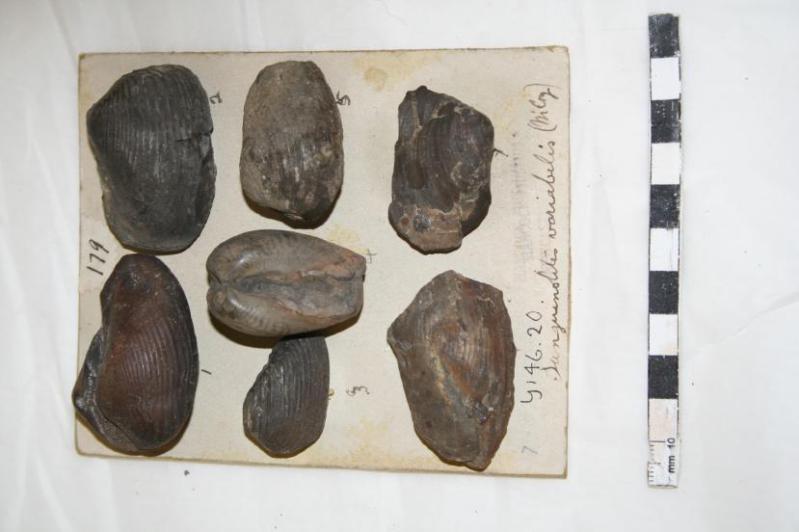 179
2
5
7
1
4
3
Y.46.20.
Sanguinolites variabilis (McCoy)
7
mm 10